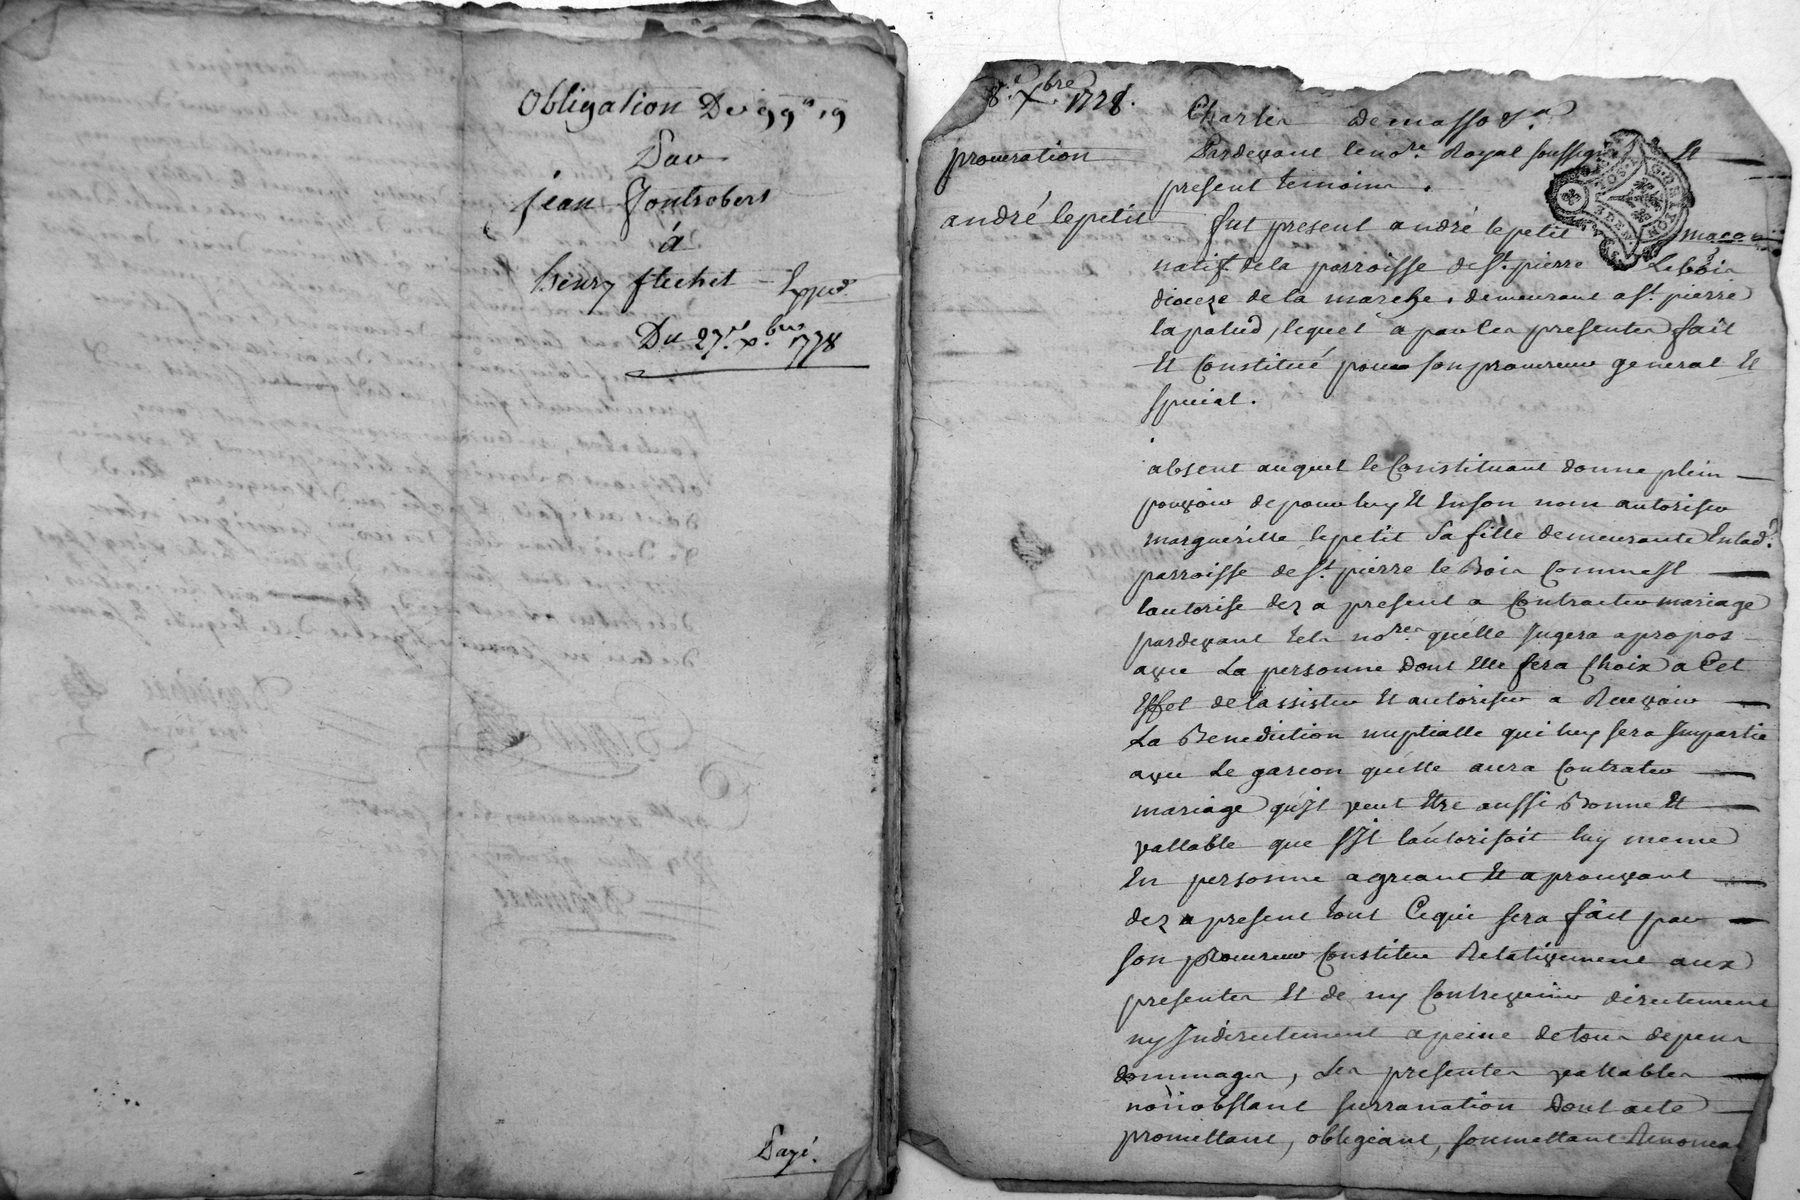 Obligation De 99# 19
Par
jean Gontrobert
à
henry flechet
Du 27e xbre 1778
Payé.
8e Xbre 1778.
procuration
andré lepetit
Pardevant le nore Royal soussigné Et
present temoins.
fut present andré lepetit maçon
natif de la parroisse de St pierre Le bois
dioceze de la marche, demeurant a St pierre
la palud, lequel a par les presentes fait
Et Constitué pour son procureur general Et
special.
absent auquel le Constituant donne plein
pouvoir de pour luy Et En son nom autoriser
margueritte lepetit Sa fille demeurante En lad.e
parroisse de St pierre le Bois Comme Il
lautorise dez a present a Contracter mariage
pardevant tels nores quelle Jugera apropos
avec La personne Dont Elle fera Choix a Cet
Effet de lassister Et autoriser a Recevoir
La Benediction nuptialle qui luy sera Impartie
avec Le garcon quelle aura Contracter
mariage qu'Il veut Etre aussi Bonne Et
vallable que s'Il lautorisoit luy meme
En personne agreant Et aprouvant
dez a present tout Ce qui sera fait par
son procureur Constitue Relativement aux
presentes Et de ny Contrevenir directement
ny Indirectement a peine de tous depens
dommages, Les presentes vallables
nonobstant surranation Dont acte
promettant, obligeant, soumettant Renoncant